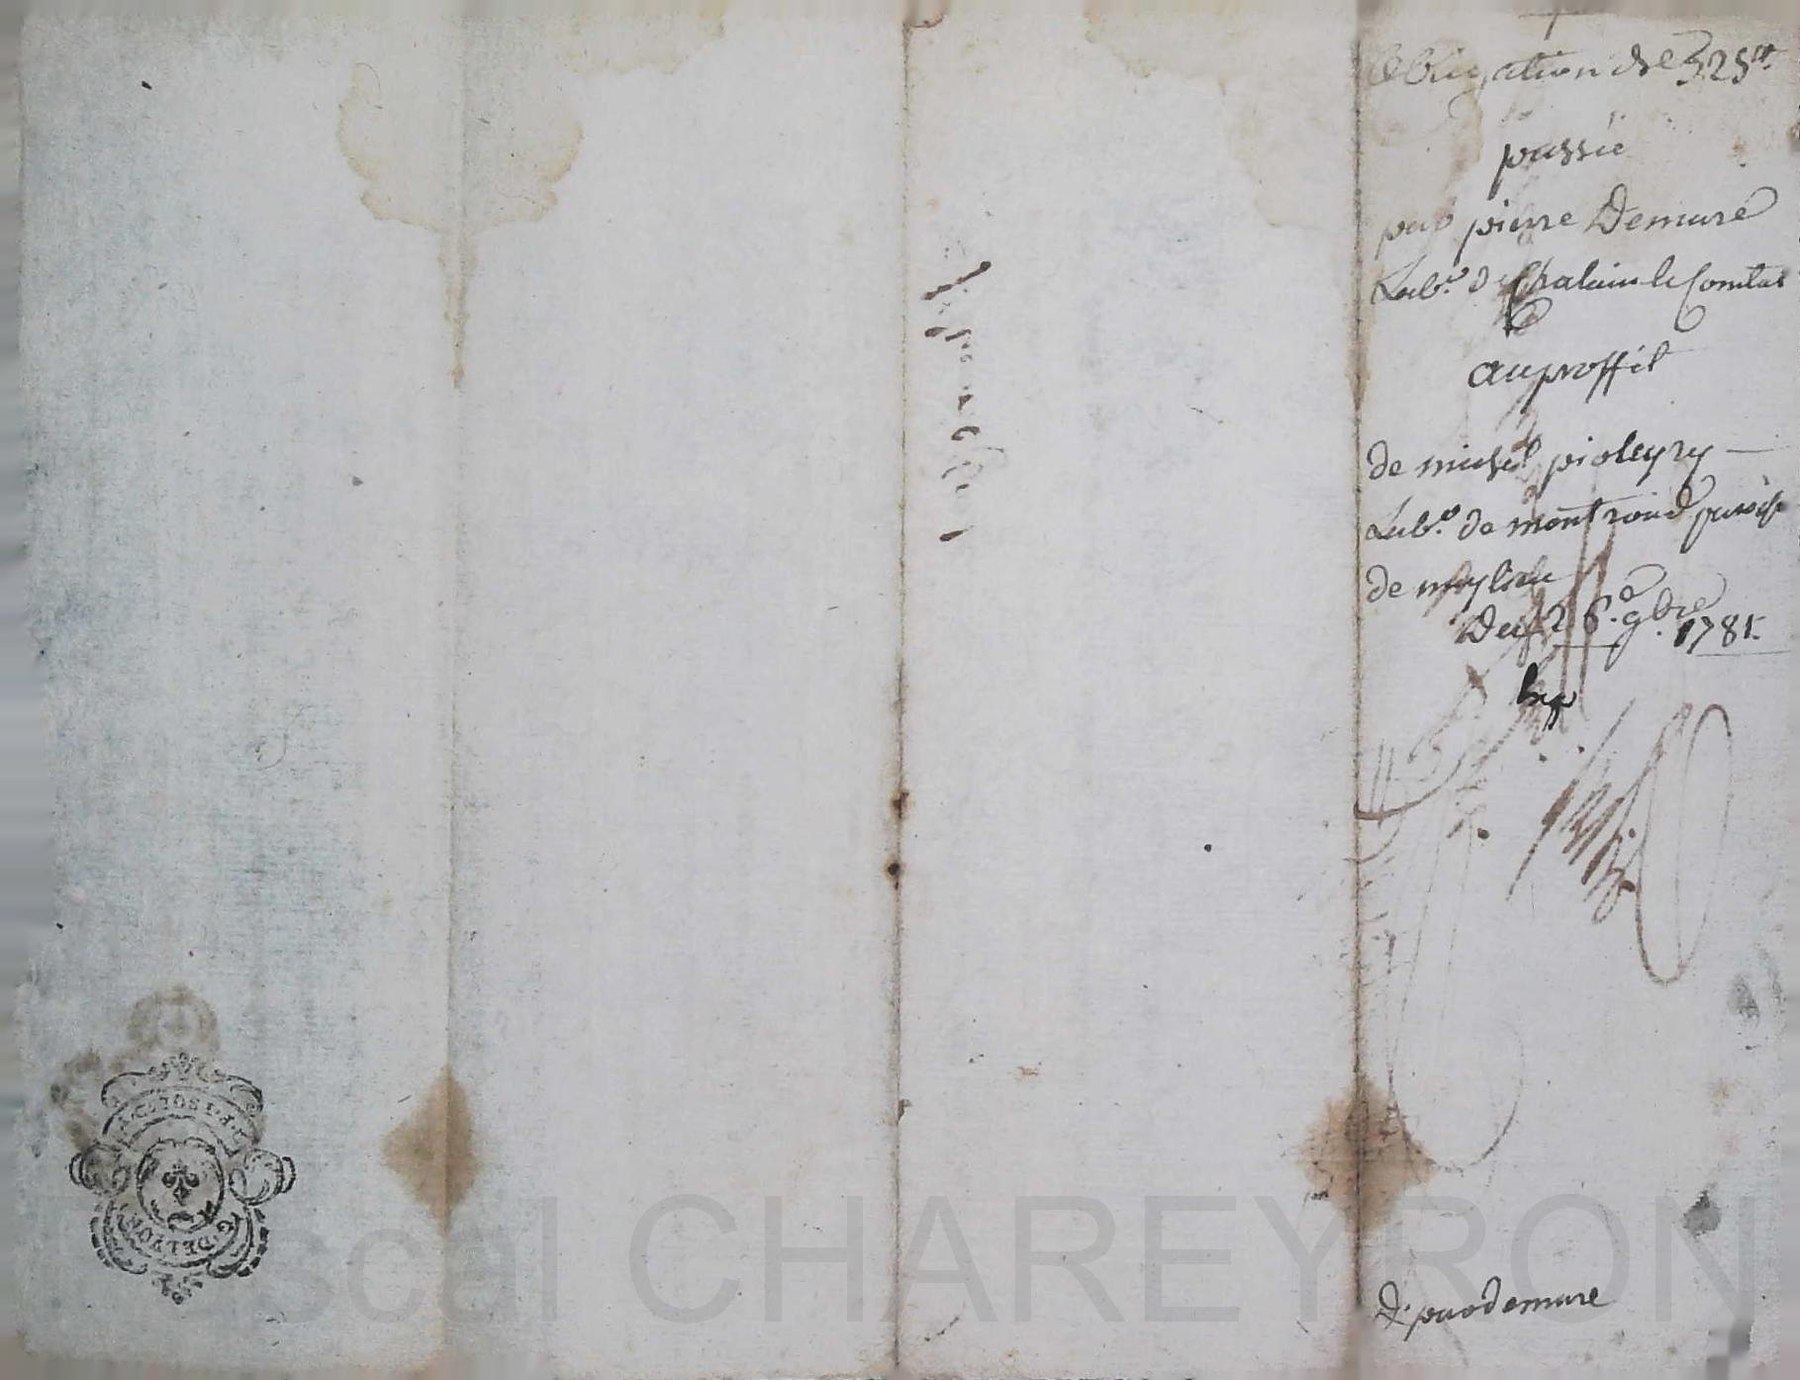 Obligation de 325tt
passée
par pierre Demure
Labr. de Chalain le Comtal
au proffit
de michel pioleyry
Labr. de montrond paroisse
de meylieu
Du 26e 9bre 1781.
D. par demure
G. DE LYON
scal CHAREYRON